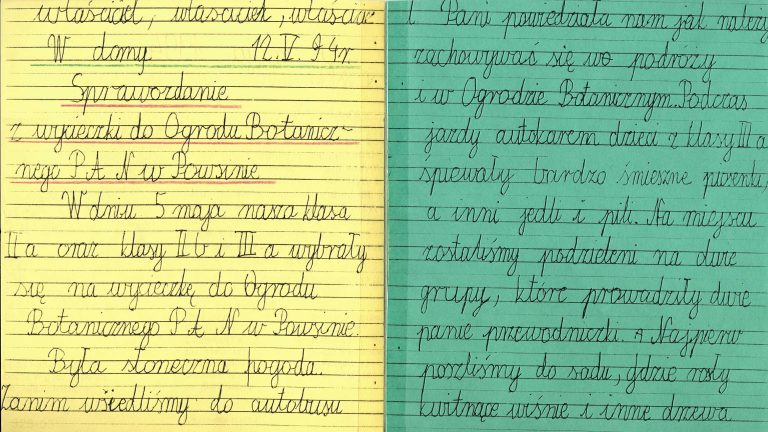 właściciel, właściciel, właścic
W domy 12.V.94r.
Sprawozdanie
z wycieczki do Ogrodu Botanicz-
nego P A N w Powsinie
W dniu 5 maja nasza klasa
II a oraz klasy II b i III a wybrały
się na wycieczkę do Ogrodu
Botanicznego P A N w Powsinie.
Była słoneczna pogoda.
Zanim wsiedliśmy do autobusu
Pani powiedziała nam jak należy
zachowywać się w podróży
i w Ogrodzie Botanicznym. Podczas
jazdy autokarem dzieci z klasy III a
śpiewały bardzo śmieszne piosenki,
a inni jedli i pili. Na miejscu
zostaliśmy podzieleni na dwie
grupy, które prowadziły dwie
panie przewodniczki. Najpierw
poszliśmy do sadu, gdzie rosły
kwitnące wiśnie i inne drzewa